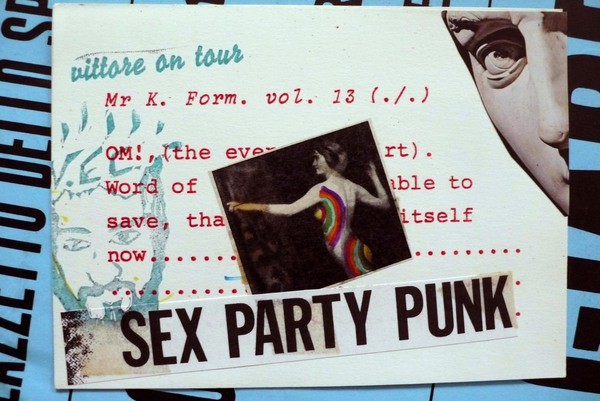 vittore on tour
Mr K. Form. vol. 13 (./.)
OM!,(the ever rt).
Word of able to
save, tha itself
now......................
SEX PARTY PUNK